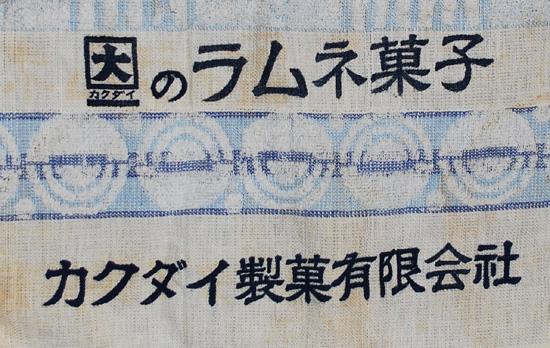 大のラムネ菓子
カクダイ
カクダイ製菓有限会社